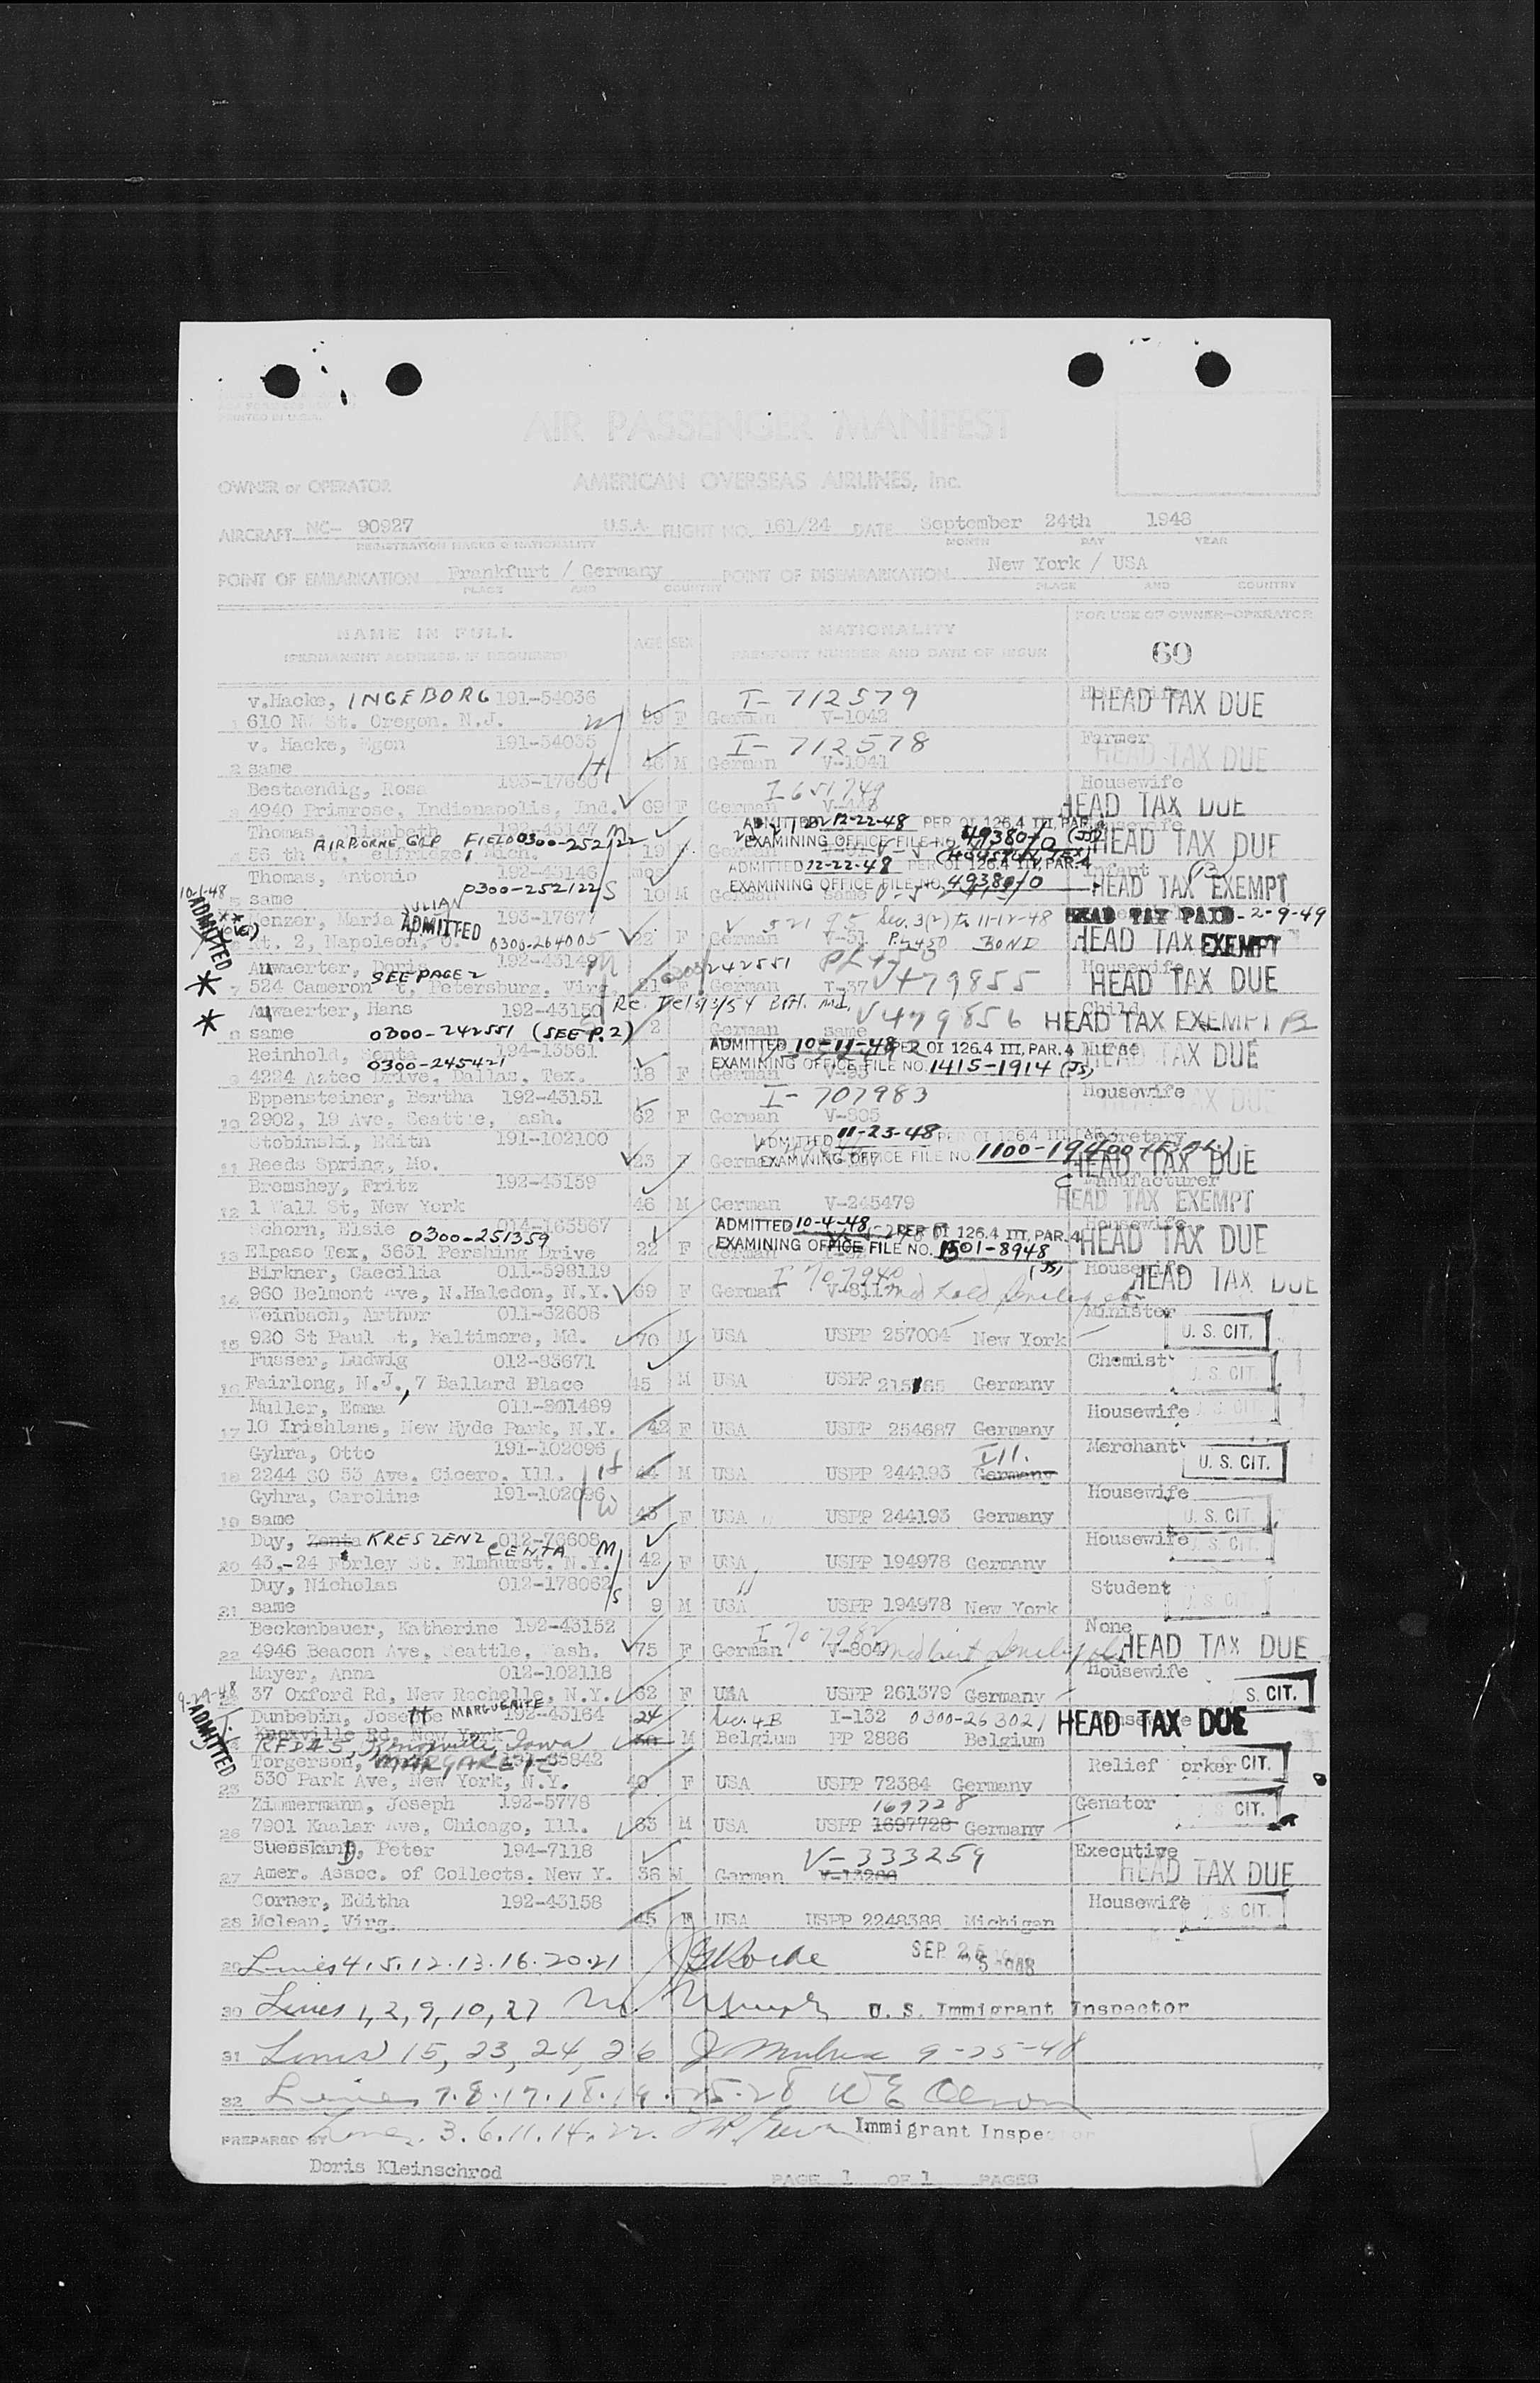 PRINTED IN U.S.A.
AIR PASSENGER MANIFEST
OWNER or OPERATOR AMERICAN OVERSEAS AIRLINES, Inc.
AIRCRAFT NC- 90927 U.S.A. FLIGHT NO. 161/24 DATE September 24th 1948
REGISTRATION MARKS & NATIONALITY MONTH DAY YEAR
POINT OF EMBARKATION Frankfurt / Germany POINT OF DISEMBARKATION New York / USA
PLACE AND COUNTRY PLACE AND COUNTRY
NAME IN FULL AGE SEX NATIONALITY FOR USE OF OWNER-OPERATOR
(PERMANENT ADDRESS, IF REQUIRED) PASSPORT NUMBER AND DATE OF ISSUE 60
v.Hacke, INGEBORG 191-54036 I- 712579 HEAD TAX DUE
1 610 NW St. Oregon. N.J. W 39 F German V-1042
v. Hacke, Egon 191-54035 I- 712578 Farmer HEAD TAX DUE
2 same H 46 M German V-1041
Bestaendig, Rosa 193-17680 I 651749 Housewife
3 4940 Primrose, Indianapolis, Ind. 69 F German HEAD TAX DUE
Thomas, Elisabeth 192-43147 M ADMITTED 12-22-48 PER OI 126.4 III, PAR. 4
AIRBORNE GRP FIELD 0300-252122 EXAMINING OFFICE FILE NO. HEAD TAX DUE
4 56 th 19 German
Thomas, Antonio 192-43146 mos ADMITTED 12-22-48 PER OI 126.4 III, PAR. 4 Infant
5 same 0300-252122 S 10 M EXAMINING OFFICE FILE NO. 49380/0 HEAD TAX EXEMPT
10-1-48 ADMITTED
Wenzer, Maria JULIAN 193-17677 V 52195 Sec. 3(2) to 11-12-48 HEAD TAX PAID - 2-9-49
Rt. 2, Napoleon, O. ADMITTED 0300-264005 22 F V-51 BOND HEAD TAX EXEMPT
Auwaerter, Doris 192-43149 M 0300/242551 V479855 Housewife
7 524 Cameron St, Petersburg, Virg. SEE PAGE 2 21 F German I-37 HEAD TAX DUE
Auwaerter, Hans 192-43150 V479856 Child
8 same 0300-242551 (SEE P. 2) 2 German same HEAD TAX EXEMPT
Reinhold, Senta 194-13561 ADMITTED 10-11-48 PER OI 126.4 III, PAR. 4 Nurse HEAD TAX DUE
9 4224 Aztec Drive, Dallas, Tex. 0300-245421 18 F German V-93 EXAMINING OFFICE FILE NO. 1415-1914 (JS)
Eppensteiner, Bertha 192-43151 I- 707983 Housewife
10 2902, 19 Ave, Seattle, ash. 62 F German V-805 HEAD TAX DUE
Stobinski, Edith 191-102100 ADMITTED 11-23-48 PER OI 126.4 III Secretary
11 Reeds Spring, Mo. 23 F German EXAMINING OFFICE FILE NO. HEAD TAX DUE
Bremshey, Fritz 192-43159 Manufacturer
12 1 Wall St, New York 46 M German V-245479 HEAD TAX EXEMPT
Schorn, Elsie 0300-251359 014-163567 ADMITTED 10-4-48 PER OI 126.4 III, PAR. 4 Housewife
13 Elpaso Tex, 3631 Pershing Drive 22 F German EXAMINING OFFICE FILE NO. 1501-8948 (JS) HEAD TAX DUE
Birkner, Caecilia 011-598119 I 707940 Housewife
14 960 Belmont Ave, N.Haledon, N.Y. 69 F German V-811 HEAD TAX DUE
Weinbach, Arthur 011-32608 Minister
15 920 St Paul St, Baltimore, Md. 70 M USA USPP 257004 New York U. S. CIT.
Fusser, Ludwig 012-83671 Chemist
16 Fairlong, N.J., 7 Ballard Place 45 M USA USPP Germany U. S. CIT.
Muller, Emma 011-801489 Housewife
17 10 Irishlane, New Hyde Park, N.Y. 42 F USA USPP 254687 Germany
Gyhra, Otto 191-102096 Ill. Merchant
18 2244 SO 53 Ave. Cicero. Ill. H 44 M USA USPP 244193 Germany U. S. CIT.
Gyhra, Caroline 191-102096 W Housewife
19 same 43 F USA USPP 244193 Germany U. S. CIT.
Duy, Zenta KRESZENZ CENTA 012-78608 Housewife
20 43.-24 Forley St. Elmhurst. N.Y. M 42 F USA USPP 194978 Germany S. CIT.
Duy, Nicholas 012-178062 Student
21 same S 9 M USA USPP 194978 New York U. S. CIT.
Beckenbauer, Katherine 192-43152 I 707982 None
22 4946 Beacon Ave, Seattle, Wash. 75 F German V-804 HEAD TAX DUE
Mayer, Anna 012-102118 Housewife
37 Oxford Rd, New Rochelle, N.Y. 62 F USA USPP 261379 Germany S. CIT.
9-29-48 ADMITTED
Dunbebin, Josette MARGUERITE 192-43164 24 Sec. 4B I-132 0300-263021 HEAD TAX DUE
Knoxville Rd, New York M Belgium PP 2886 Belgium
RFD #5, Knoxville, Iowa
Torgerson, MARGARETE Relief orker CIT.
25 530 Park Ave, New York, N.Y. 40 F USA USPP 72384 Germany
Zimmermann, Joseph 192-5778 169728 Genator
26 7901 Kaalar Ave, Chicago, Ill. 63 M USA USPP 1697728 Germany CIT.
Suesskand, Peter 194-7118 V-333259 Executive
27 Amer. Assoc. of Collects. New Y. 38 M German V-13260 HEAD TAX DUE
Corner, Editha 192-43158 Housewife
28 Mclean, Virg. 45 F USA USPP 2248388 Michigan S. CIT.
29 Lines 4.5.12.13.16.20.21 SEP 25 1948
30 Lines 1, 2, 9, 10, 27 U. S. Immigrant Inspector
31 Lines 15, 23, 24, 26 9-25-48
32 Lines 7.8.17.18.19.25.28 W E Olson
PREPARED BY Lines 3.6.11.14.22. Immigrant Inspector
Doris Kleinschrod PAGE 1 OF 1 PAGES